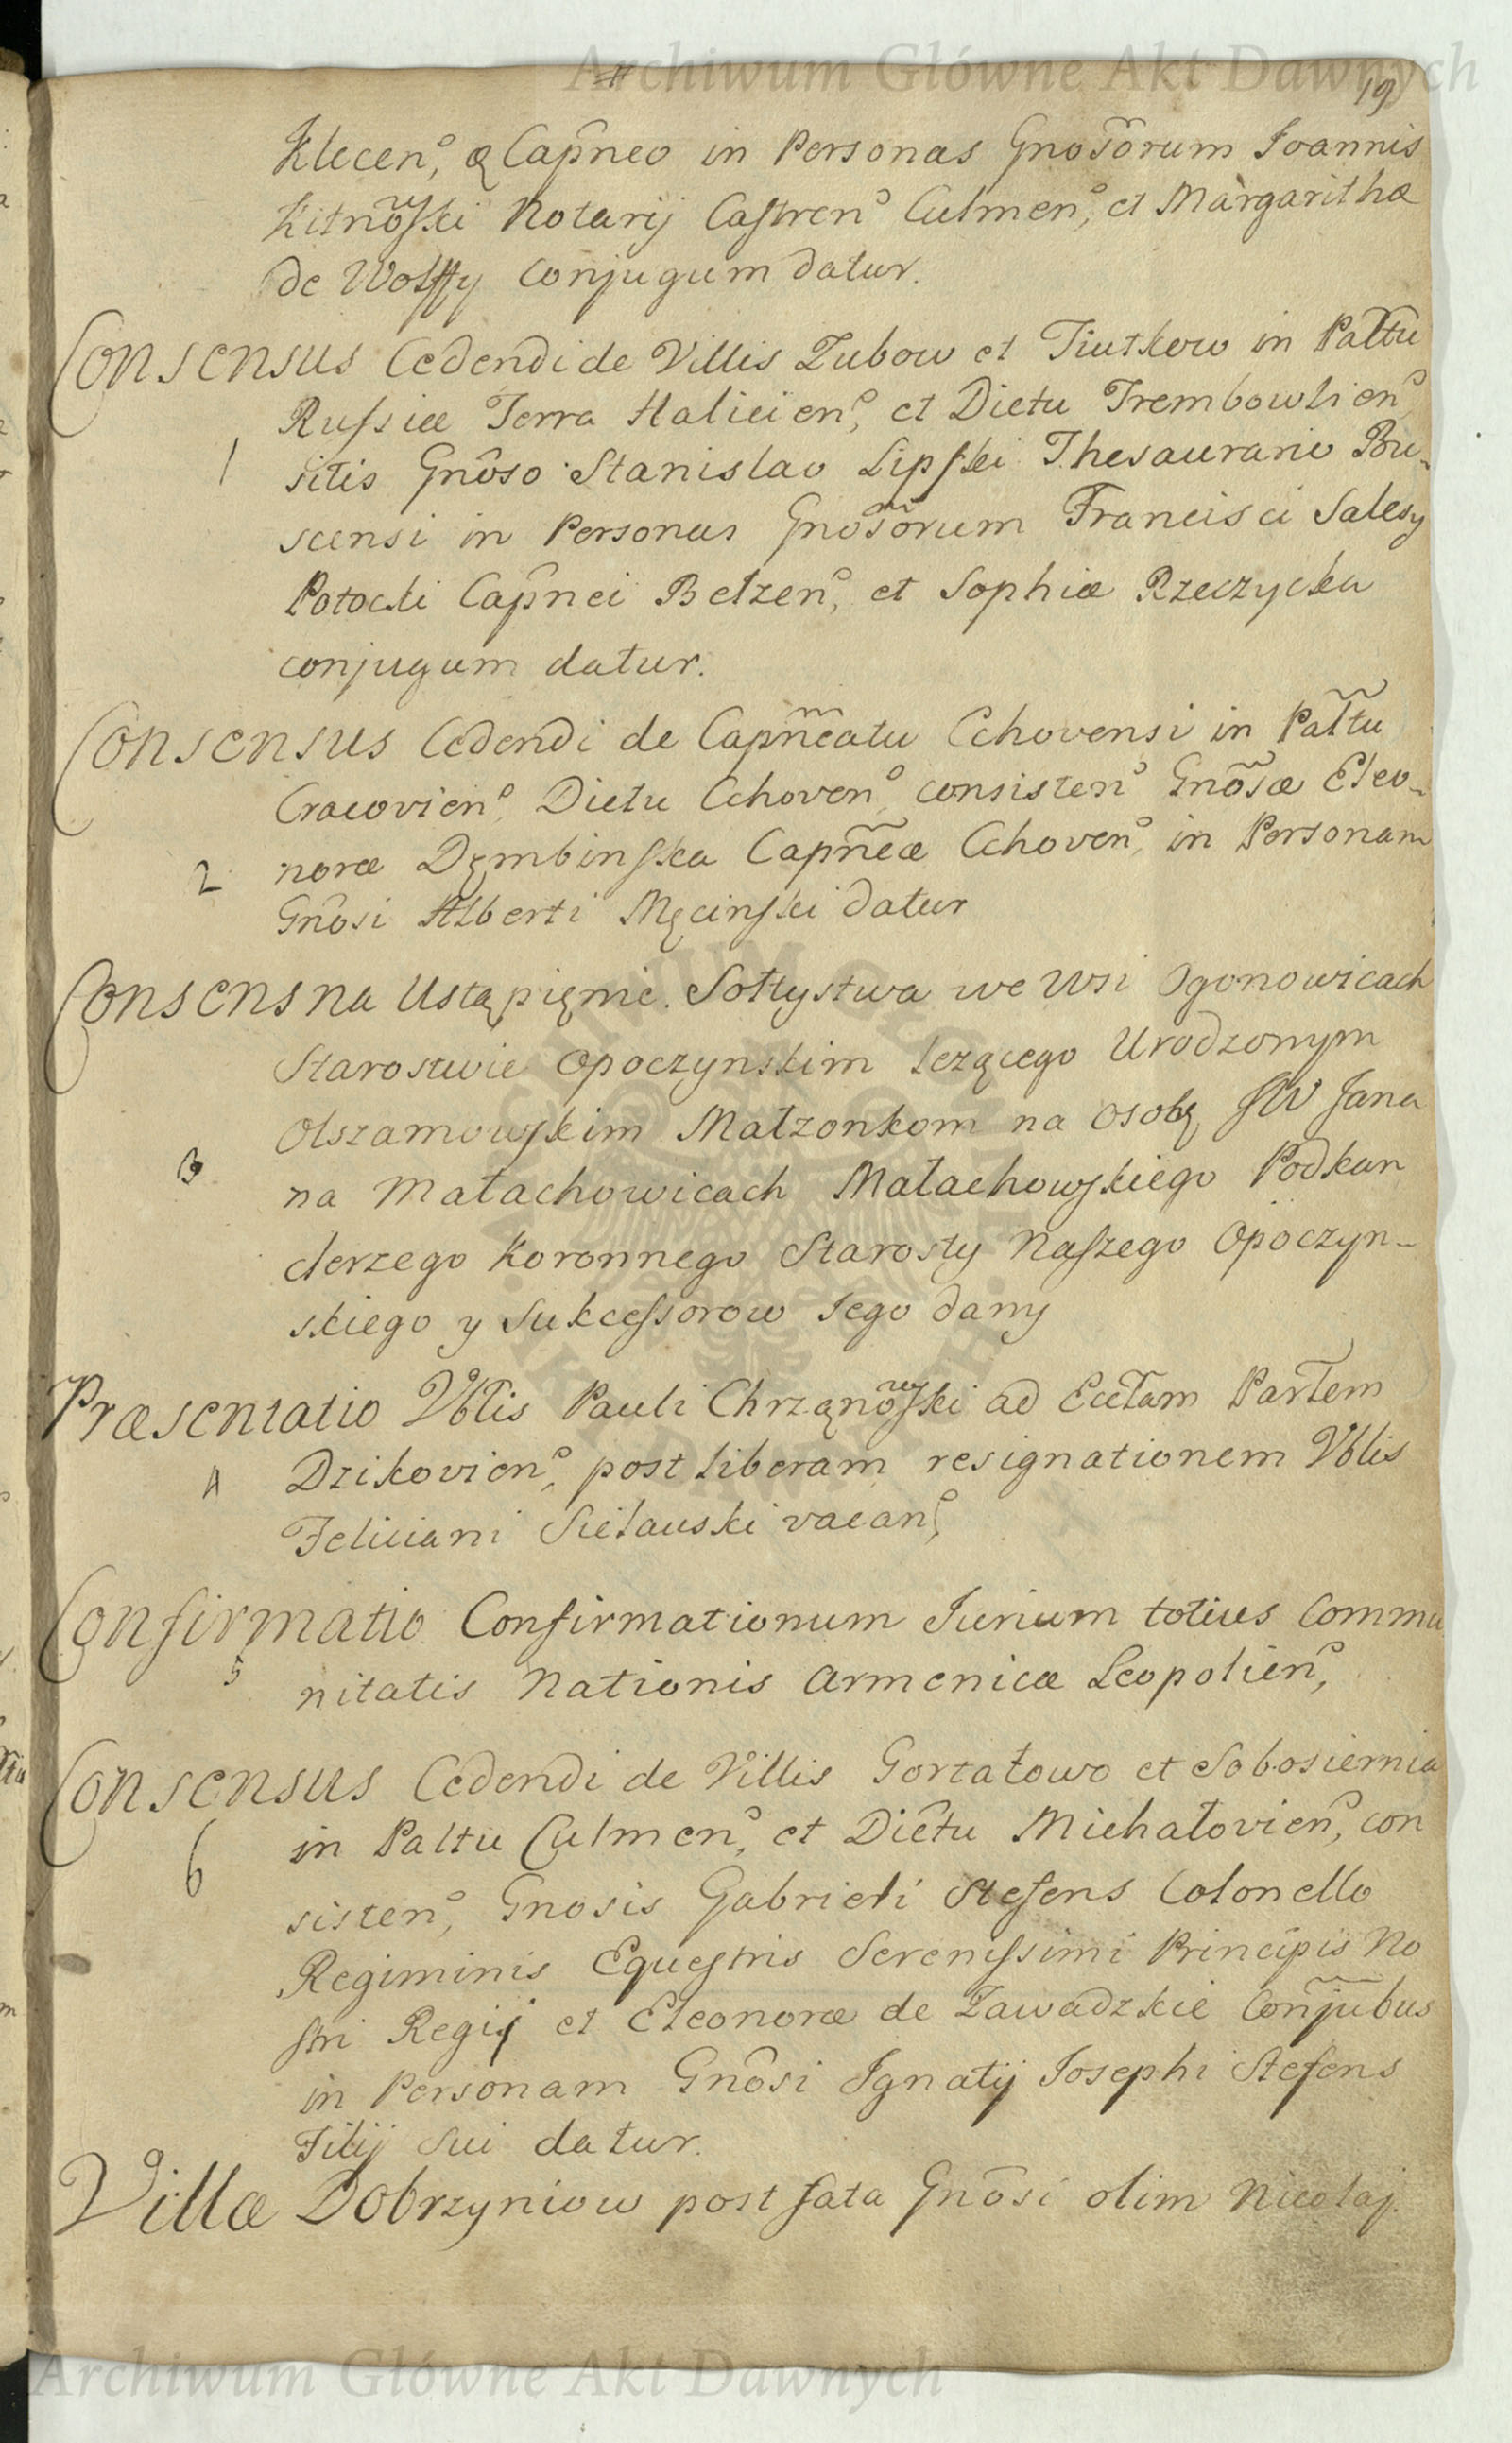 Archiwum Główne Akt Dawnych
19
Klecen, & Capneo in Personas Gnosorum Joannis
Kitnowski Notarij Castren Culmen, et Margarithæ
de Wolffy Conjugum datur.
Consensus Cedendi de Villis Zubow et Tiutkow in Paltu
Russiæ Terra Halicien, et Dictu Trembowlien
1 sitis Gnoso Stanislao Lipski Thesaurario Bu-
scensi in Personas Gnosorum Francisci Salesy
Potocki Capnei Belzen, et Sophiæ Rzeczycka
conjugum datur.
Consensus Cedendi de Capneatu Cchovensi in Paltu
Cracovien, Dictu Cchoven, consisten Gnosæ Eleo-
2 noræ Dęmbinska Capneæ Cchoven, in Personam
Gnosi Alberti Męcinski datur
Consens na Ustąpięnie Sołtystwa we Wsi Ogonowicach
Starostwie Opoczynskim lezącego Urodzonym
Olszamowskim Małzonkom na osobę JW Jana
3 na Małachowicach Małachowskiego Podkan
clerzego Koronnego Starosty Naszego Opoczyn-
skiego y Sukcessorow Jego dany
Præsentatio Vblis Pauli Chrząnowski ad Ecclam Parlem
4 Dzikovien, post liberam resignationem Vblis
Feliciani Sielauski vacan,
Confirmatio Confirmationum Jurium totius Commu
5 nitatis Nationis Armenicæ Leopolien,
Consensus Cedendi de Villis Gortatowo et Sobosiernia
6 in Paltu Culmen, et Dictu Michałovien, con
sisten, Gnosis Gabrieli Stefens Colonello
Regiminis Equestris Serenissimi Principis No
stri Regij et Eleonoræ de Zawadzkie Conjubus
in Personam Gnosi Ignatij Josephi Stefens
Filij Sui datur.
Villæ Dobrzyniow post fata Gnosi olim Nicolaj.
Archiwum Główne Akt Dawnych